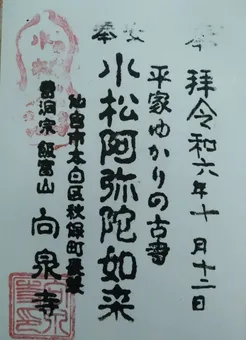 奉拝 令和六年十月十二日
平家ゆかりの古
奉安 小松阿弥陀如来
仙台市太白区秋保町長袋
曹洞宗 飯富山 向泉寺
小松